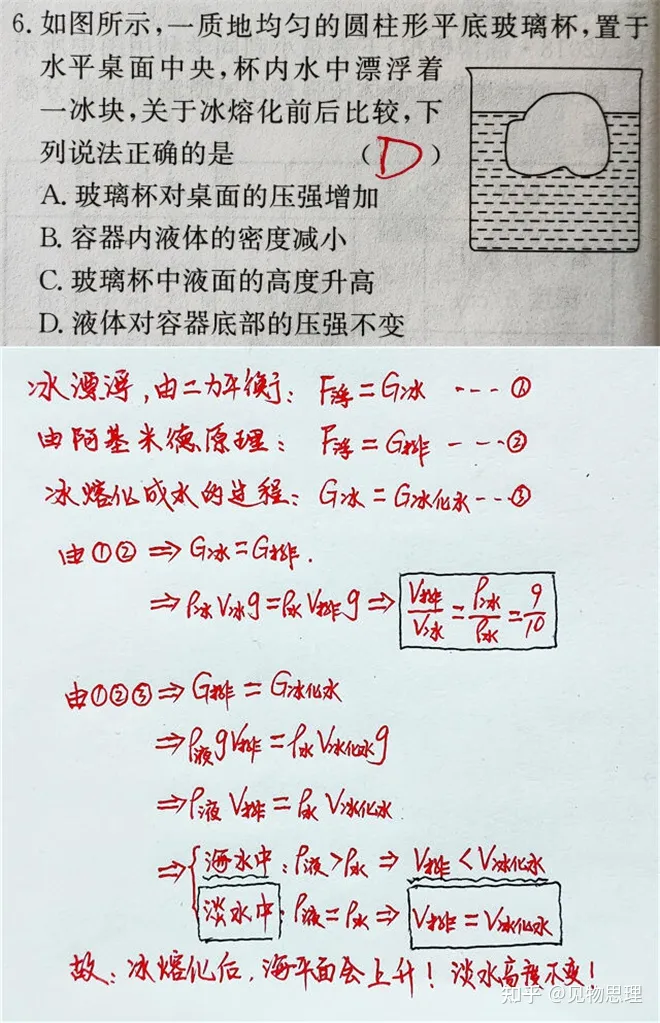 6. 如图所示,一质地均匀的圆柱形平底玻璃杯,置于
水平桌面中央,杯内水中漂浮着
一冰块,关于冰熔化前后比较,下
列说法正确的是 (D)
A. 玻璃杯对桌面的压强增加
B. 容器内液体的密度减小
C. 玻璃杯中液面的高度升高
D. 液体对容器底部的压强不变
冰漂浮,由二力平衡: F浮=G冰 ---①
由阿基米德原理: F浮=G排 ---②
冰熔化成水的过程: G冰=G冰化水---③
由①② ⇒ G冰=G排.
⇒ρ冰V冰g=ρ水V排g⇒ V排/V冰=ρ冰/ρ水=9/10
由①②③⇒G排=G冰化水
⇒ρ液gV排=ρ水V冰化水g
⇒ρ液V排=ρ水V冰化水
⇒{海水中:ρ液>ρ水 ⇒ V排<V冰化水
淡水中:ρ液=ρ水 ⇒ V排=V冰化水
故:冰熔化后,海平面会上升!淡水高度不变!
知乎 @见物思理